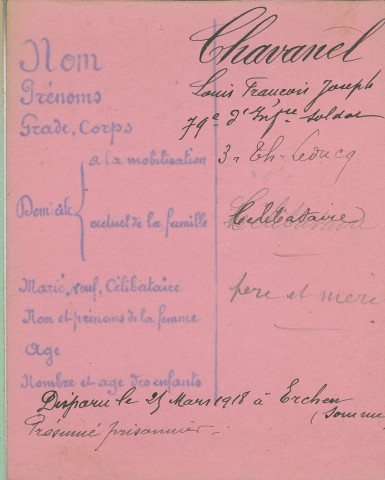 Nom Chavanel
Prénoms Louis François Joseph
Grade, Corps 79e d'Infrie soldat
à la mobilisation 3, Th. Leducq
Domicile
actuel de la famille Célibataire
Marié, veuf, Célibataire père et mère
Nom et prénoms de la femme
Age
Nombre et âge des enfants
Disparu le 25 Mars 1918 à Ercheu
(Somme
Présumé prisonnier.